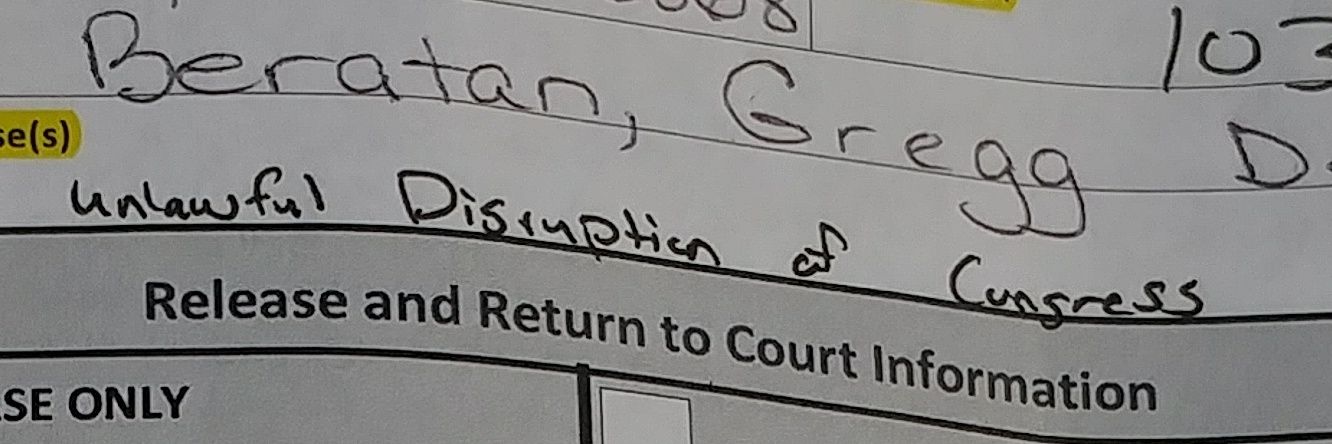 Beratan, Gregg D.
103
se(s)
Unlawful Disruption of Congress
Release and Return to Court Information
SE ONLY